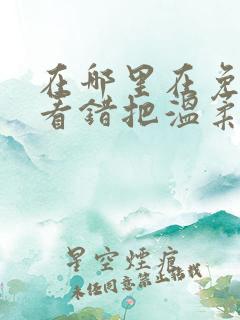 在哪里在免
看错把温柔
星空煙痕
未经同意禁止搭载